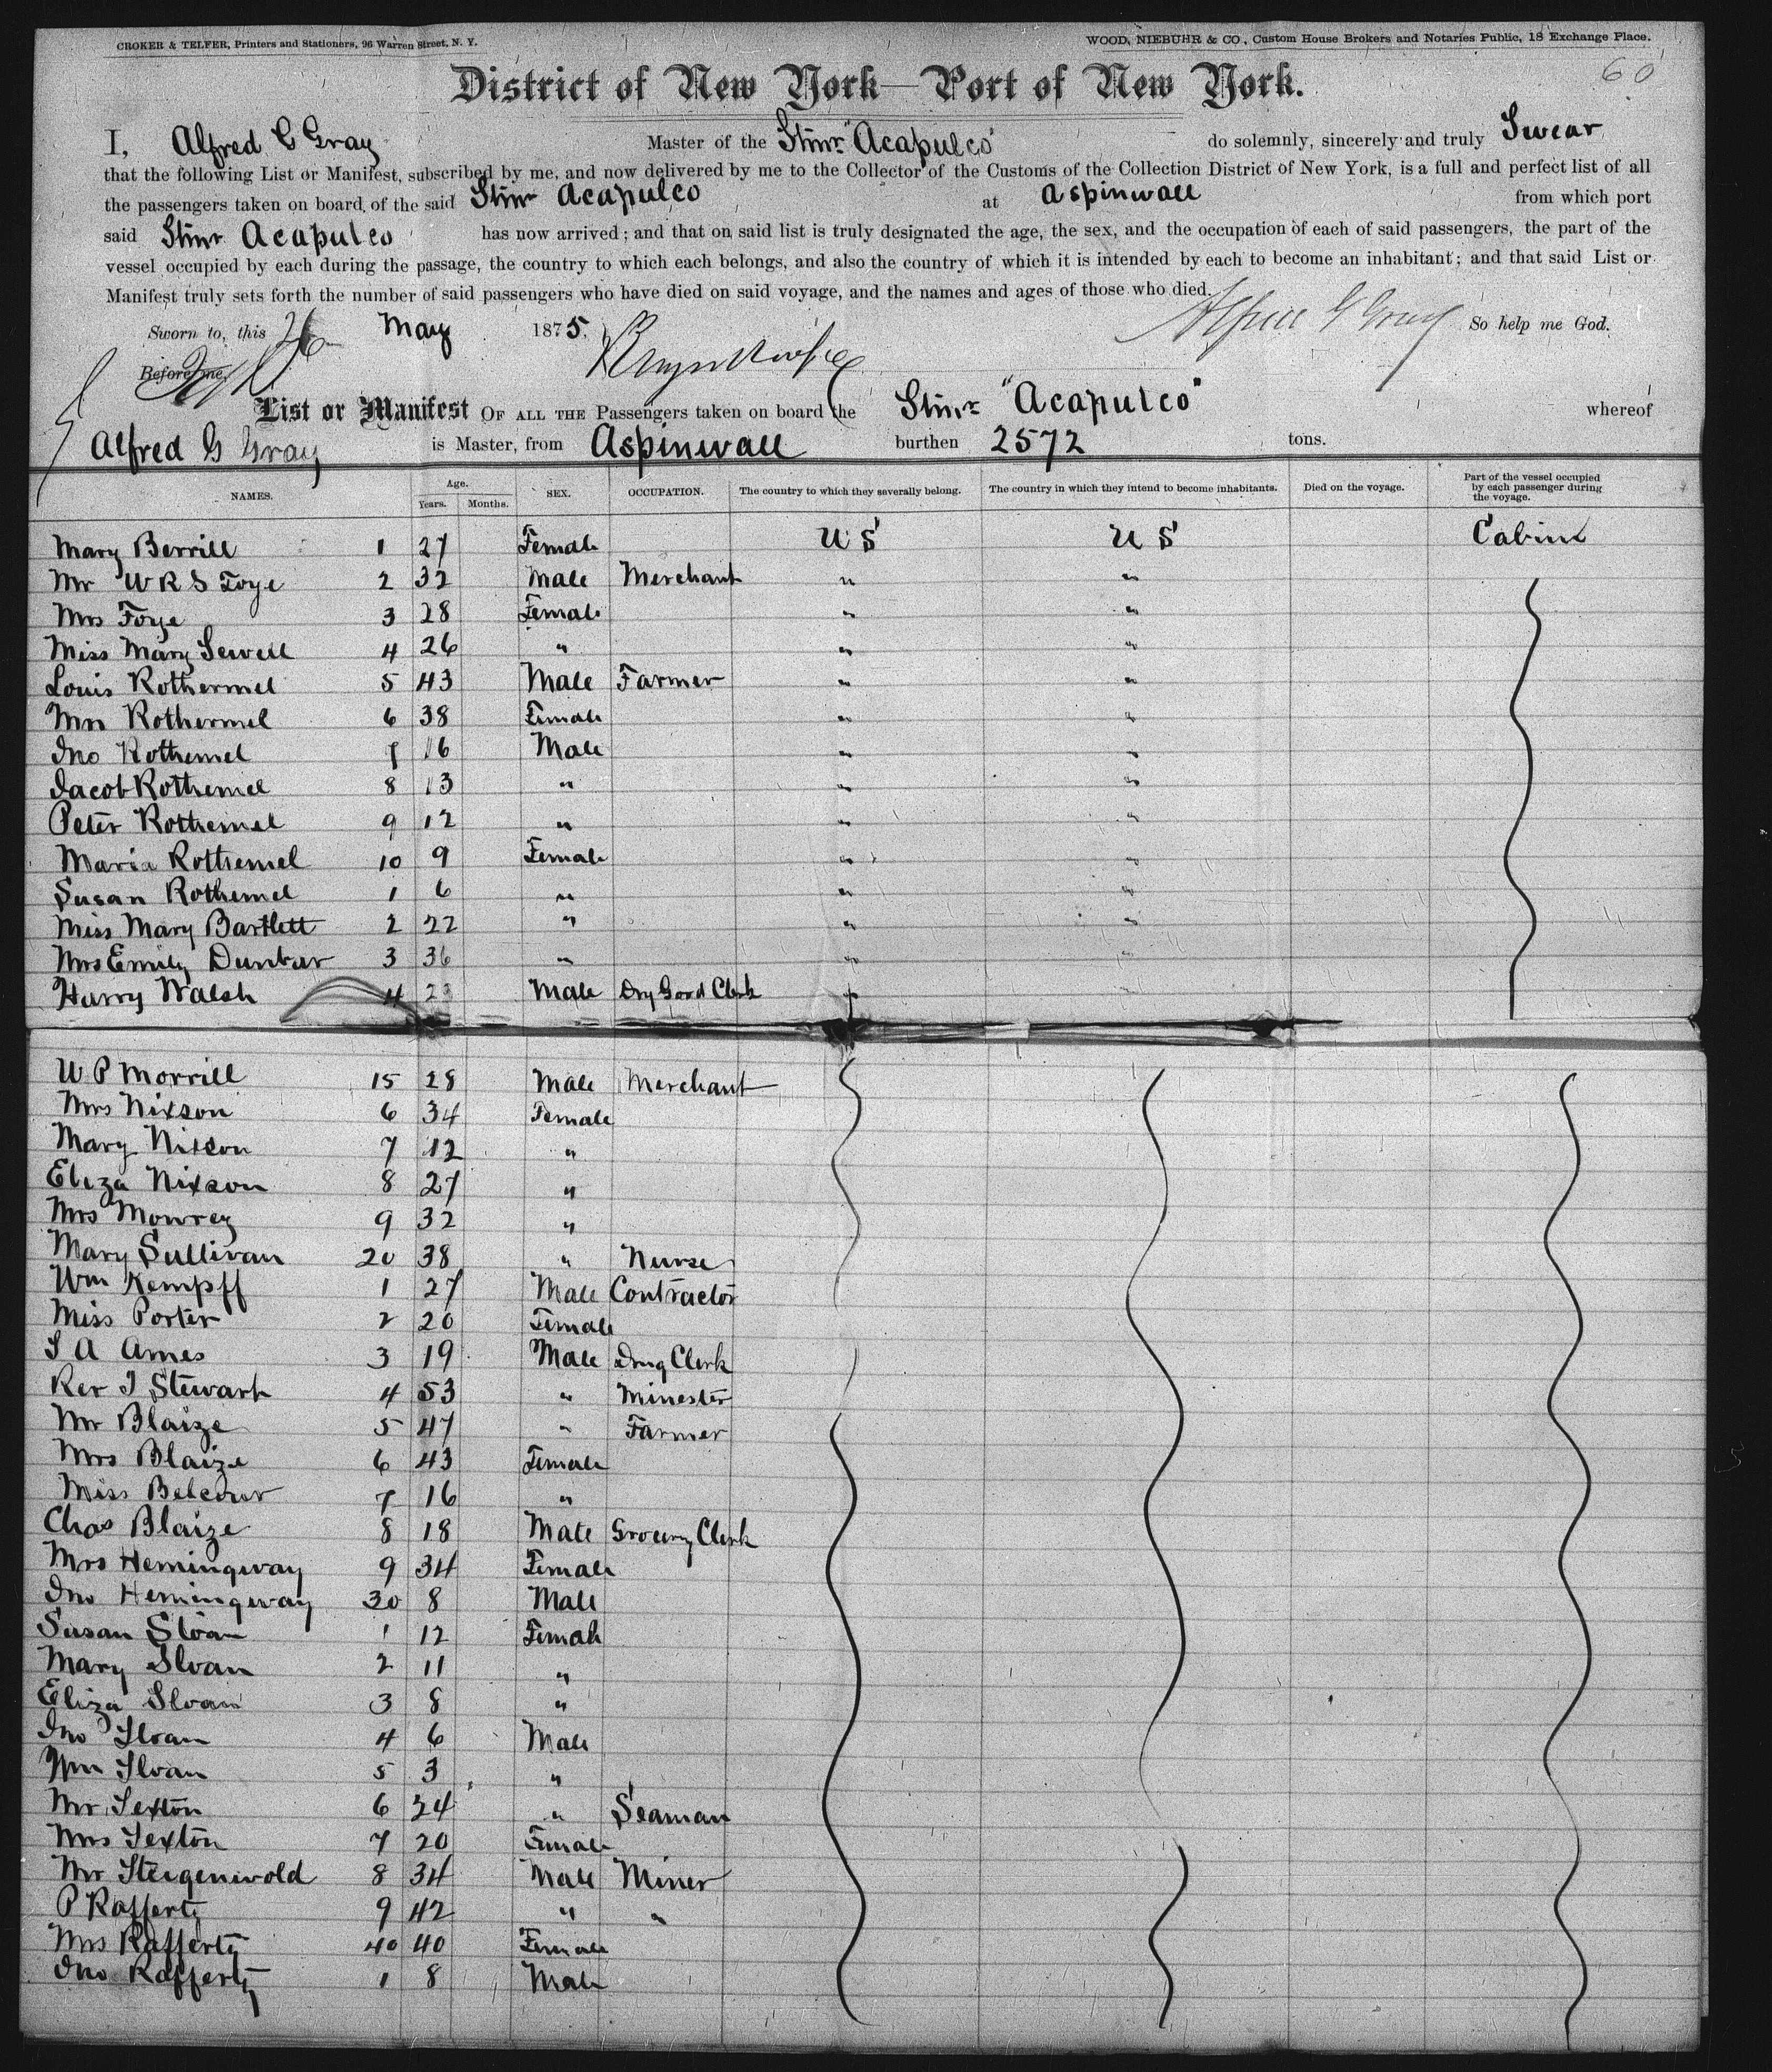 CROKER & TELFER, Printers and Stationers, 96 Warren Street, N. Y.
WOOD, NIEBUHR & CO., Custom House Brokers and Notaries Public, 18 Exchange Place.
60
District of New York—Port of New York.
I, Alfred G Gray Master of the Stmr "Acapulco" do solemnly, sincerely and truly Swear
that the following List or Manifest, subscribed by me, and now delivered by me to the Collector of the Customs of the Collection District of New York, is a full and perfect list of all
the passengers taken on board of the said Stmr Acapulco at Aspinwall from which port
said Stmr Acapulco has now arrived; and that on said list is truly designated the age, the sex, and the occupation of each of said passengers, the part of the
vessel occupied by each during the passage, the country to which each belongs, and also the country of which it is intended by each to become an inhabitant; and that said List or
Manifest truly sets forth the number of said passengers who have died on said voyage, and the names and ages of those who died.
Sworn to, this 26 May 1875, Alfred G Gray So help me God.
Before me,
List or Manifest OF ALL THE Passengers taken on board the Stmr "Acapulco" whereof
Alfred G Gray is Master, from Aspinwall burthen 2572 tons.
NAMES. Age. Years. Months. SEX. OCCUPATION. The country to which they severally belong. The country in which they intend to become inhabitants. Died on the voyage. Part of the vessel occupied by each passenger during the voyage.
Mary Berrill 1 27 Female U S U S Cabin
Mr W R S Foye 2 32 Male Merchant " "
Mrs Foye 3 28 Female " "
Miss Mary Sewell 4 26 " " "
Louis Rothermel 5 43 Male Farmer " "
Mrs Rothermel 6 38 Female " "
Jno Rothemel 7 16 Male " "
Jacob Rothemel 8 13 " " "
Peter Rothemel 9 12 " " "
Maria Rothemel 10 9 Female " "
Susan Rothemel 1 6 " " "
Miss Mary Bartlett 2 22 " " "
Mrs Emily Dunbar 3 36 " " "
Harry Walsh 4 23 Male Dry Good Clerk "
W P Morrill 15 28 Male Merchant
Mrs Nixson 6 34 Female
Mary Nixson 7 12 "
Eliza Nixson 8 27 "
Mrs Mowrey 9 32 "
Mary Sullivan 20 38 " Nurse
Wm Kempff 1 27 Male Contractor
Miss Porter 2 20 Female
S A Ames 3 19 Male Drug Clerk
Rev J Stewart 4 53 " Minester
Mr Blaize 5 47 " Farmer
Mrs Blaize 6 43 Female
Miss Belcour 7 16 "
Chas Blaize 8 18 Male Grocery Clerk
Mrs Hemingway 9 34 Female
Jno Hemingway 30 8 Male
Susan Sloan 1 12 Female
Mary Sloan 2 11 "
Eliza Sloan 3 8 "
Jno Sloan 4 6 Male
Wm Sloan 5 3 "
Mr Sexton 6 24 " Seaman
Mrs Sexton 7 20 Female
Mr Steigenwold 8 34 Male Miner
P Rafferty 9 42 " "
Mrs Rafferty 40 40 Female
Jno Rafferty 1 8 Male